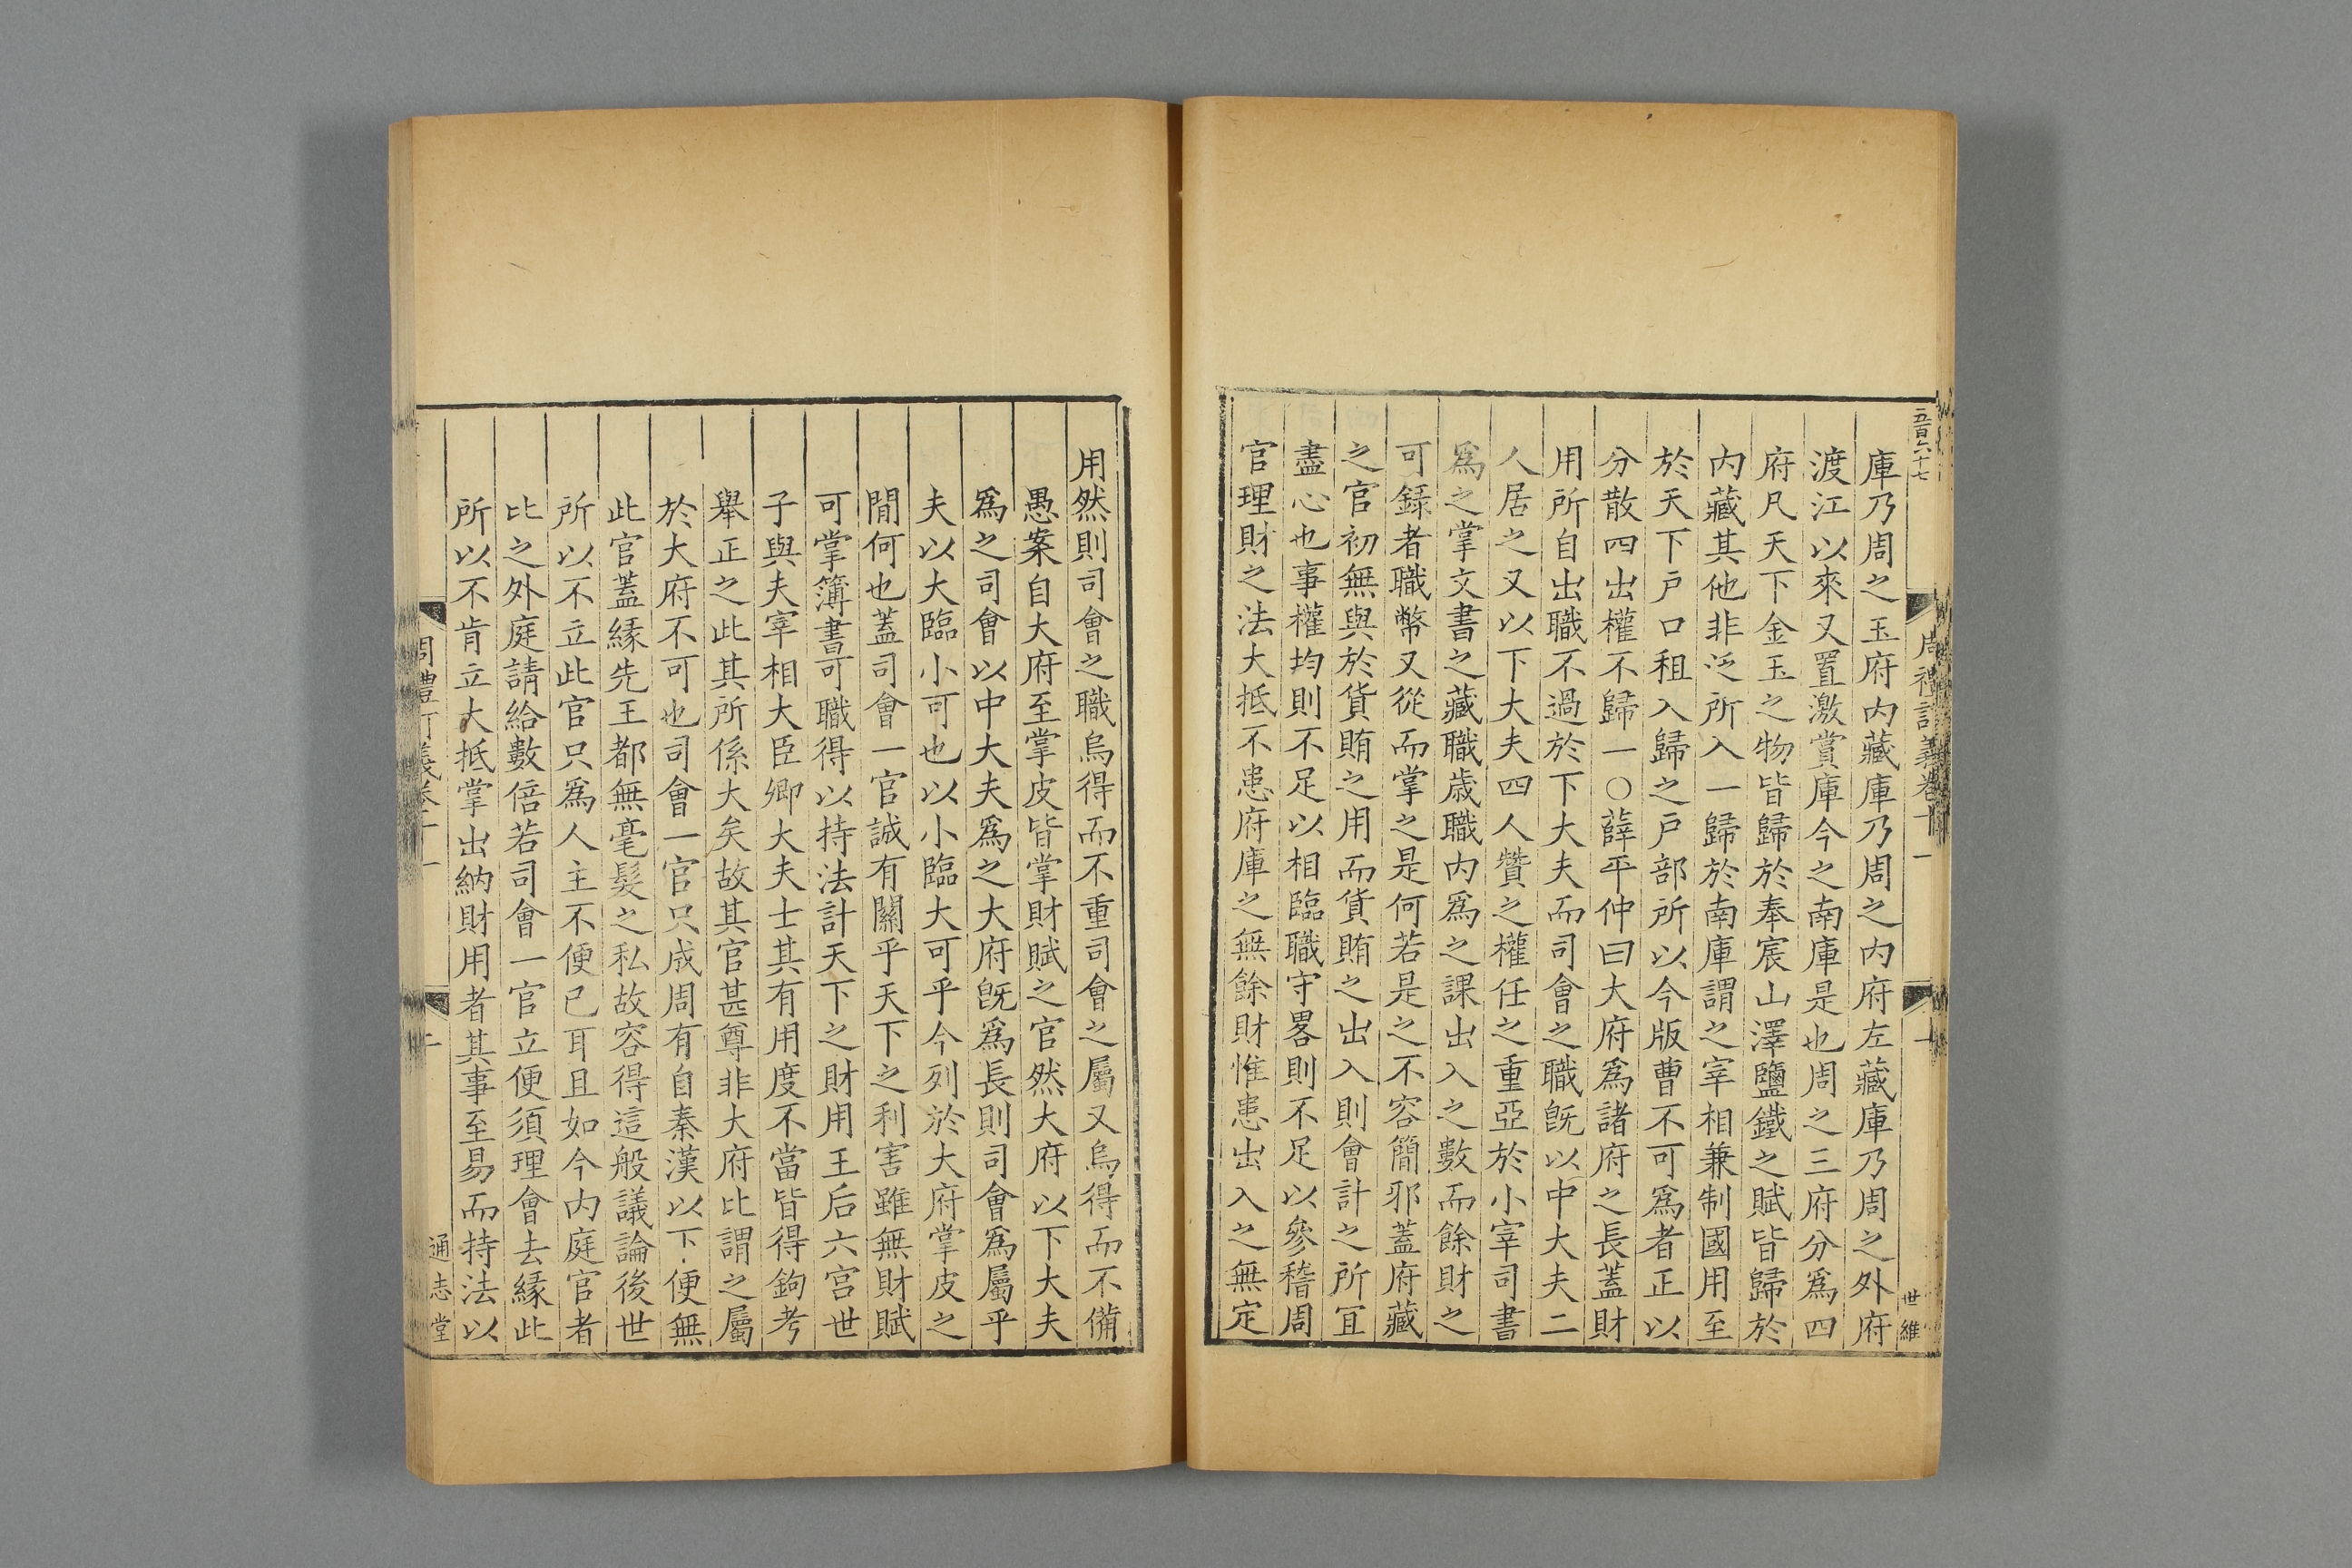 五百六十七
周禮訂義卷十一
世維
庫乃周之玉府内藏庫乃周之内府左藏庫乃周之外府
渡江以來又置激賞庫今之南庫是也周之三府分爲四
府凡天下金玉之物皆歸於奉宸山澤鹽鐵之賦皆歸於
内藏其他非泛所入一歸於南庫謂之宰相兼制國用至
於天下戸口租入歸之戸部所以今版曹不可爲者正以
分散四出權不歸一○薛平仲曰大府爲諸府之長蓋財
用所自出職不過於下大夫而司會之職旣以中大夫二
人居之又以下大夫四人贊之權任之重亞於小宰司書
爲之掌文書之藏職歲職内爲之課出入之數而餘財之
可録者職幣又從而掌之是何若是之不容簡邪蓋府藏
之官初無與於貨賄之用而貨賄之出入則會計之所宜
盡心也事權均則不足以相臨職守畧則不足以參稽周
官理財之法大抵不患府庫之無餘財惟患出入之無定
用然則司會之職烏得而不重司會之屬又烏得而不備
愚案自大府至掌皮皆掌財賦之官然大府以下大夫
爲之司會以中大夫爲之大府旣爲長則司會爲屬乎
夫以大臨小可也以小臨大可乎今列於大府掌皮之
閒何也蓋司會一官誠有關乎天下之利害雖無財賦
可掌簿書可職得以持法計天下之財用王后六宫世
子與夫宰相大臣卿大夫士其有用度不當皆得鉤考
舉正之此其所係大矣故其官甚尊非大府比謂之屬
於大府不可也司會一官只成周有自秦漢以下便無
此官蓋緣先王都無毫髮之私故容得這般議論後世
所以不立此官只爲人主不便已耳且如今内庭官者
比之外庭請給數倍若司會一官立便須理會去緣此
所以不肯立大抵掌出納財用者其事至易而持法以
周禮訂義卷十一
通志堂